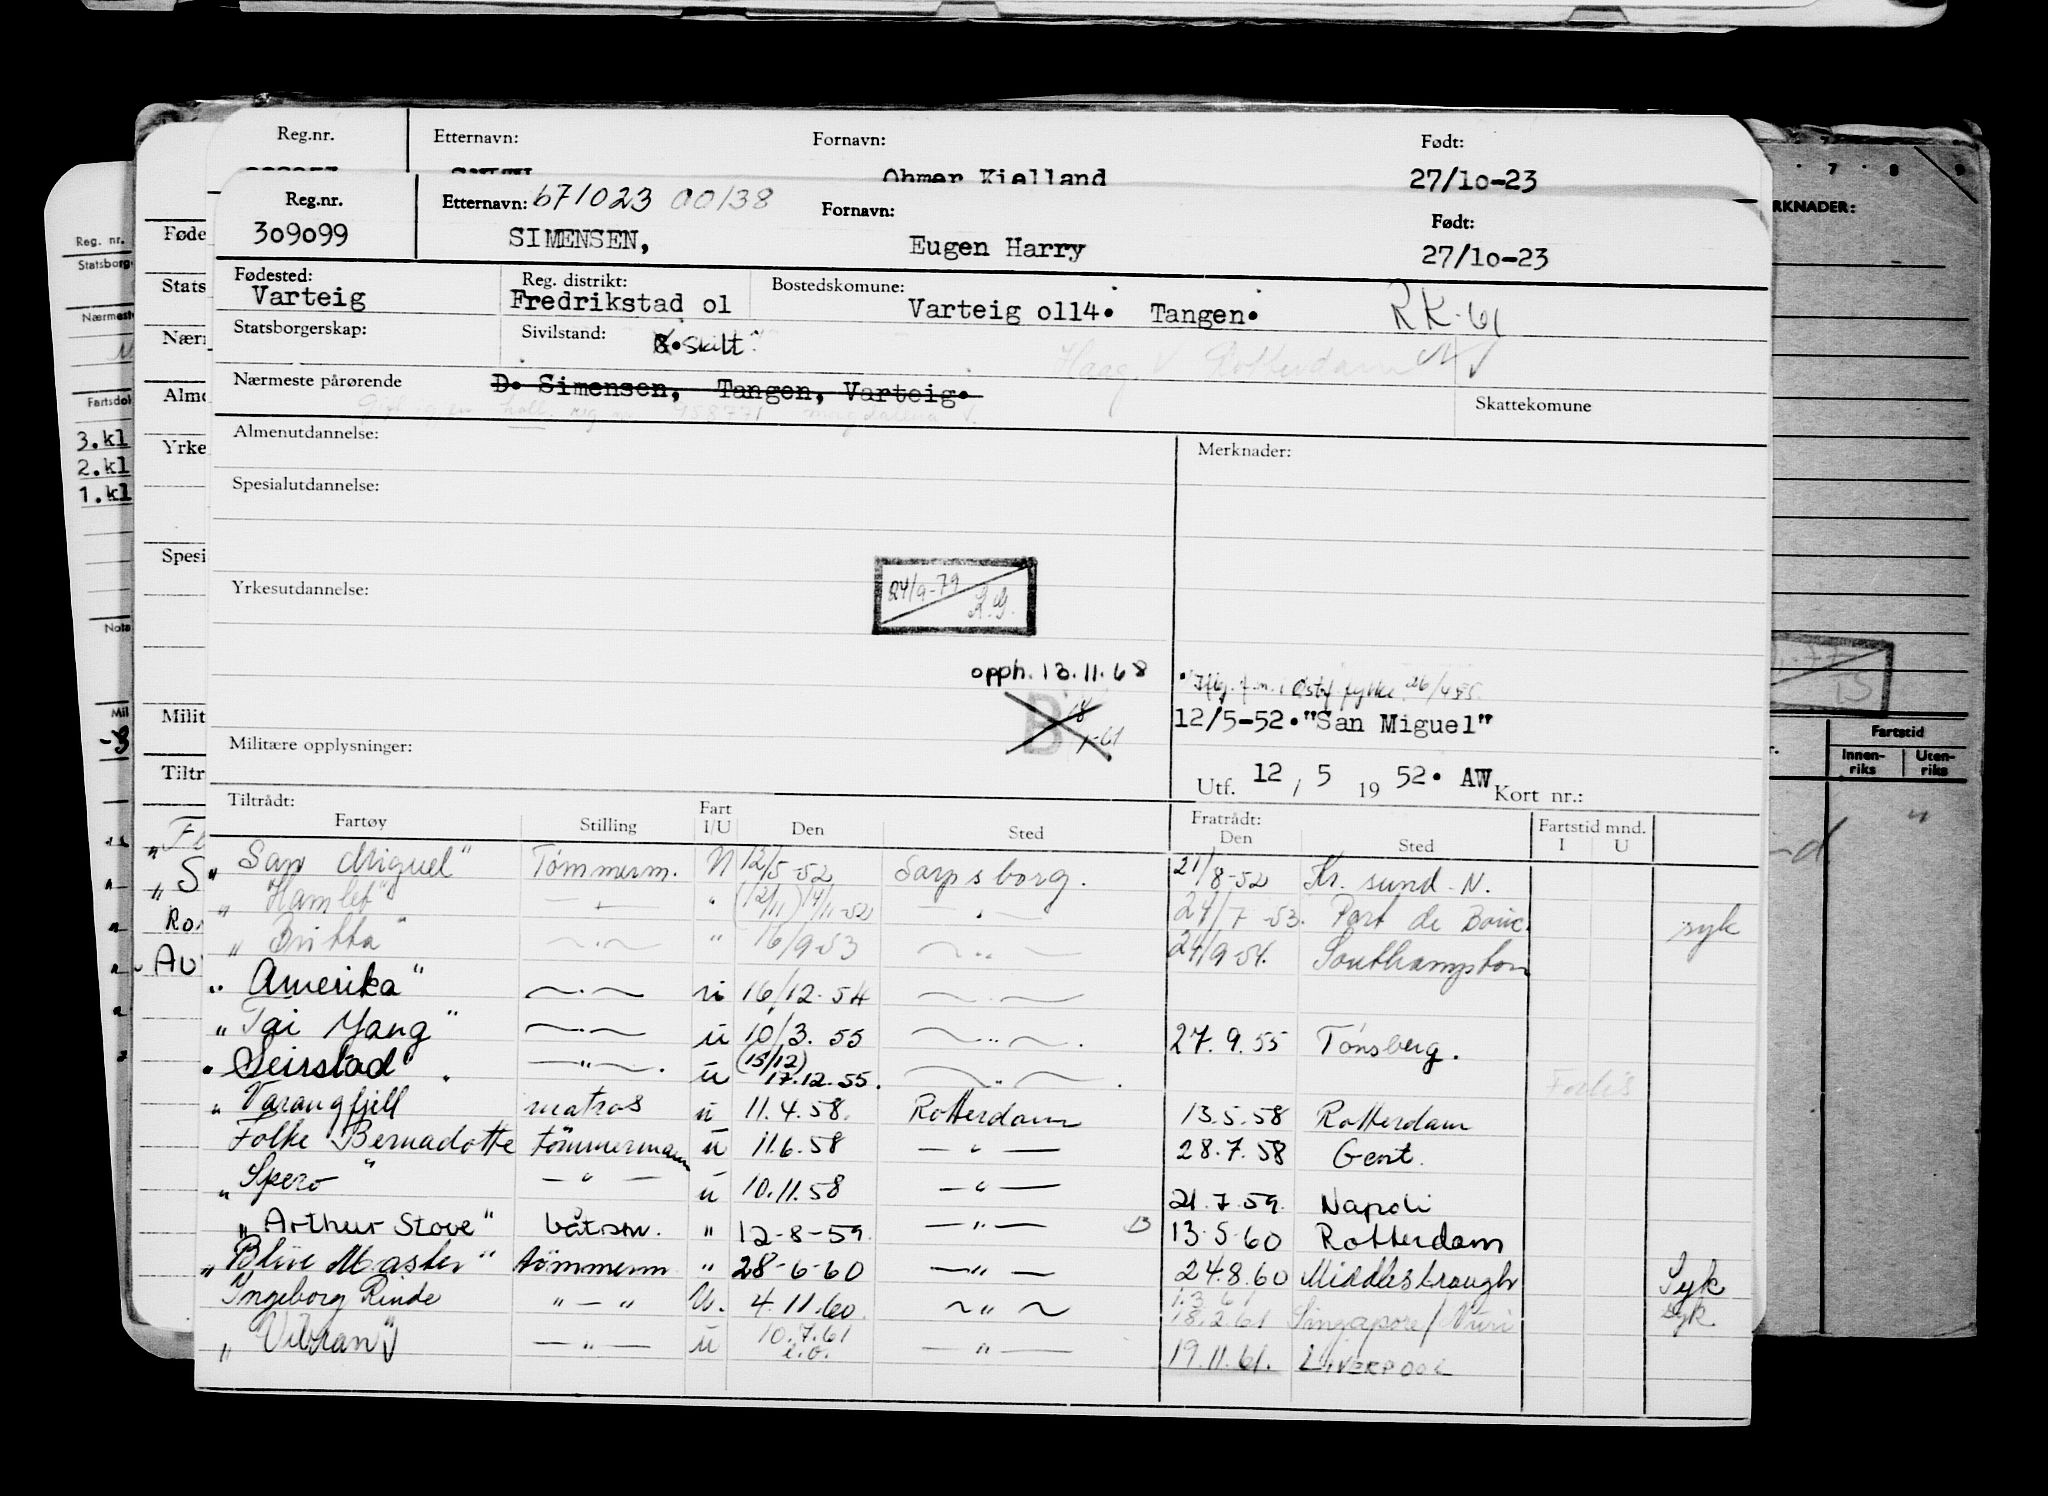 Reg.nr. Etternavn: Fornavn: Født:
Ohmer Kielland 27/10-23
Reg.nr. Etternavn: 671023 00138 Fornavn: Født:
309099 SIMENSEN, Eugen Harry 27/10-23
Fødested: Reg. distrikt: Bostedskomune:
Varteig Fredrikstad 01 Varteig 0114. Tangen. RK-61
Statsborgerskap: Sivilstand: skilt
Haag V Rotterdam
Nærmeste pårørende D. Simensen, Tangen, Varteig.
Skattekomune
Almenutdannelse: Merknader:
Spesialutdannelse:
Yrkesutdannelse: 24/9-79
opph. 13.11.68
B 18/1-61
12/5-52. "San Miguel"
Militære opplysninger:
Utf. 12 / 5 19 52. AW Kort nr.:
Tiltrådt: Fratrådt: Fartstid mnd.
Fartøy Stilling Fart I/U Den Sted Den Sted I U
"San Miguel" Tømmerm. N 12/5-52 Sarpsborg. 21/8-52 Kr. sund. N.
"Hamlet" — " — " (12/11) 14/11-52 — " — 24/7-53. Port de Bouc. syk
"Britta" — " — " 16/9-53 — " — 24/9-54. Southampton
"Amerika" — " — u 16/12-54 — " —
"Tai Yang" — " — u 10/3. 55 — " — 27.9.55 Tønsberg.
"Seirstad" — " — u (15/12) 17.12.55. — " —
"Varangfjell matros u 11.4.58. Rotterdam 13.5.58 Rotterdam
Folke Bernadotte tømmermann u 11.6.58 — " — 28.7.58 Gent.
"Spero" — " — u 10.11.58 — " — 21.7.59. Napoli
"Arthur Stove" båtsm. " 12-8-59. — " — 13 13.5.60 Rotterdam
"Blue Master" tømmerm " 28-6-60 — " — 24.8.60 Middlesbrough Syk
Ingeborg Rinde " — " U. 4.11.60. — " — 1.3.61 18.2.61 Singapore/ syk.
"Vibran" — " — u 10.7.61 e.o. — " — 19.11.61. LIVERPOOL
Reg. nr.
Nærmest
3.kl
2.kl
1.kl
Føde
Stats
Nær
Alm
Yrke
Spesi
Milit
Tiltr
7 8 9
RKNADER:
Fartstid
Innen-riks Uten-riks